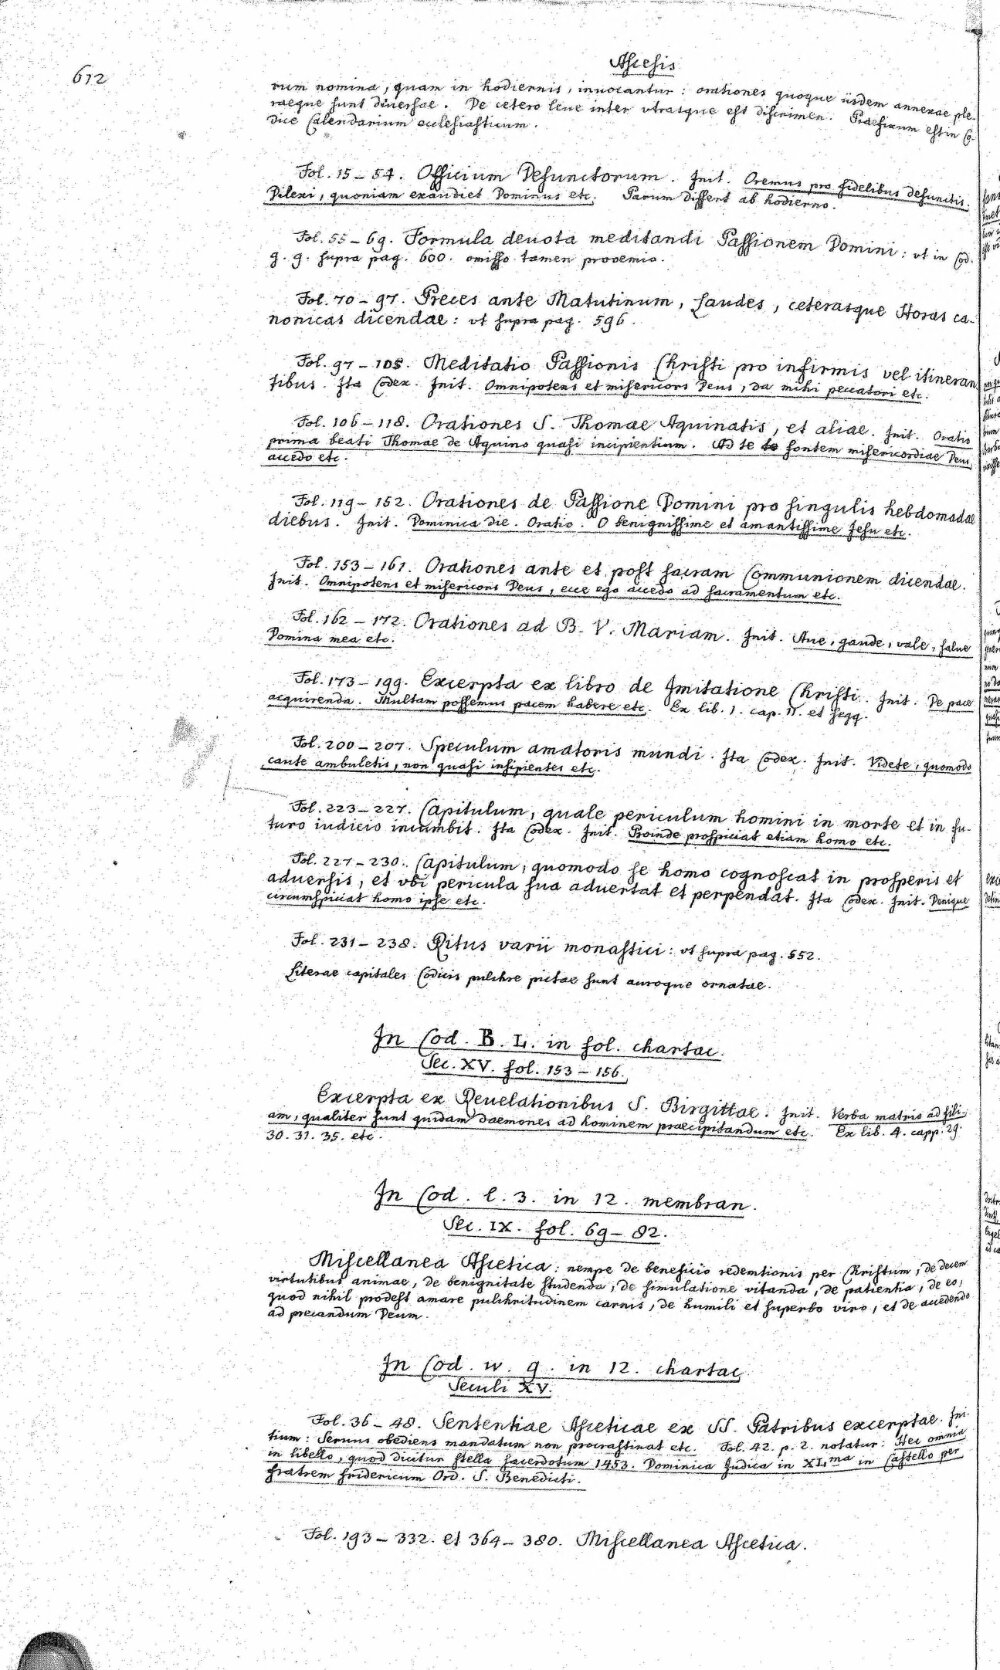 612
Ascesis
rum nomina, quam in hodiernis, inuocantur: orationes quoque iisdem annexae ple-
raeque sunt diuersae. De cetero leue inter vtrasque est discrimen. Praefixum est in Co-
dice Calendarium ecclesiasticum.
Fol. 15-54. Officium Defunctorum. Init. Oremus pro fidelibus defunctis.
Dilexi, quoniam exaudiet Dominus etc. Parum differt ab hodierno.
Fol. 55-69. Formula deuota meditandi Passionem Domini: vt in Cod.
g. g. supra pag. 600. omisso tamen prooemio.
Fol. 70-97. Preces ante Matutinum, Laudes, ceterasque Horas ca-
nonicas dicendae: vt supra pag. 596.
Fol. 97-105. Meditatio Passionis Christi pro infirmis vel itineran
tibus. Ita Codex. Init. Omnipotens et misericors Deus, da mihi peccatori etc.
Fol. 106-118. Orationes S. Thomae Aquinatis, et aliae. Init. Oratio
prima beati Thomae de Aquino quasi incipientium. Ad te fontem misericordiae Deus
accedo etc.
Fol. 119-152. Orationes de Passione Domini pro singulis hebdomadae
diebus. Init. Dominica die. Oratio. O benignissime et amantissime Jesu etc.
Fol. 153-161. Orationes ante et post sacram Communionem dicendae.
Init. Omnipotens et misericors Deus, ecce ego accedo ad sacramentum etc.
Fol. 162-172. Orationes ad B. V. Mariam. Init. Aue, gaude, vale, salue
Domina mea etc.
Fol. 173-199. Excerpta ex libro de Imitatione Christi. Init. De pace
acquirenda. Multam possemus pacem habere etc. Ex lib. 1. cap. 11. et seqq.
Fol. 200-207. Speculum amatoris mundi. Ita Codex. Init. Videte, quomodo
caute ambuletis, non quasi insipientes etc.
Fol. 223-227. Capitulum, quale periculum homini in morte et in fu-
turo iudicio incumbit. Ita Codex. Init. Proinde prospiciat etiam homo etc.
Fol. 227-230. Capitulum, quomodo se homo cognoscat in prosperis et
aduersis, et vbi pericula sua aduertat et perpendat. Ita Codex. Init. Denique
circumspiciat homo ipse etc.
Fol. 231-238. Ritus varii monastici: vt supra pag. 552.
Literae capitales Codicis pulchre pictae sunt auroque ornatae.
In Cod. B. L. in fol. chartac.
Sec. XV. fol. 153-156.
Excerpta ex Reuelationibus S. Birgittae. Init. Verba matris ad fili-
am, qualiter sunt quidam daemones ad hominem praecipitandum etc. Ex lib. 4. capp. 29.
30. 31. 35. etc.
In Cod. l. 3. in 12. membran.
Sec. IX. fol. 69-82.
Miscellanea Ascetica: nempe de beneficio redemtionis per Christum, de decem
virtutibus animae, de benignitate studenda, de simulatione vitanda, de patientia, de eo,
quod nihil prodest amare pulchritudinem carnis, de humili et superbo viro, et de accedendo
ad precandum Deum.
In Cod. w. g. in 12. chartac
Seculi XV.
Fol. 36-48. Sententiae Asceticae ex SS. Patribus excerptae. Ini
tium: Seruus obediens mandatum non procrastinat etc. Fol. 42. p. 2. notatur: Hec omnia
in libello, quod dicitur stella sacerdotum 1453. Dominica Judica in XLma in Castello per
fratrem fridericum Ord. S. Benedicti.
Fol. 193-332. et 364-380. Miscellanea Ascetica.